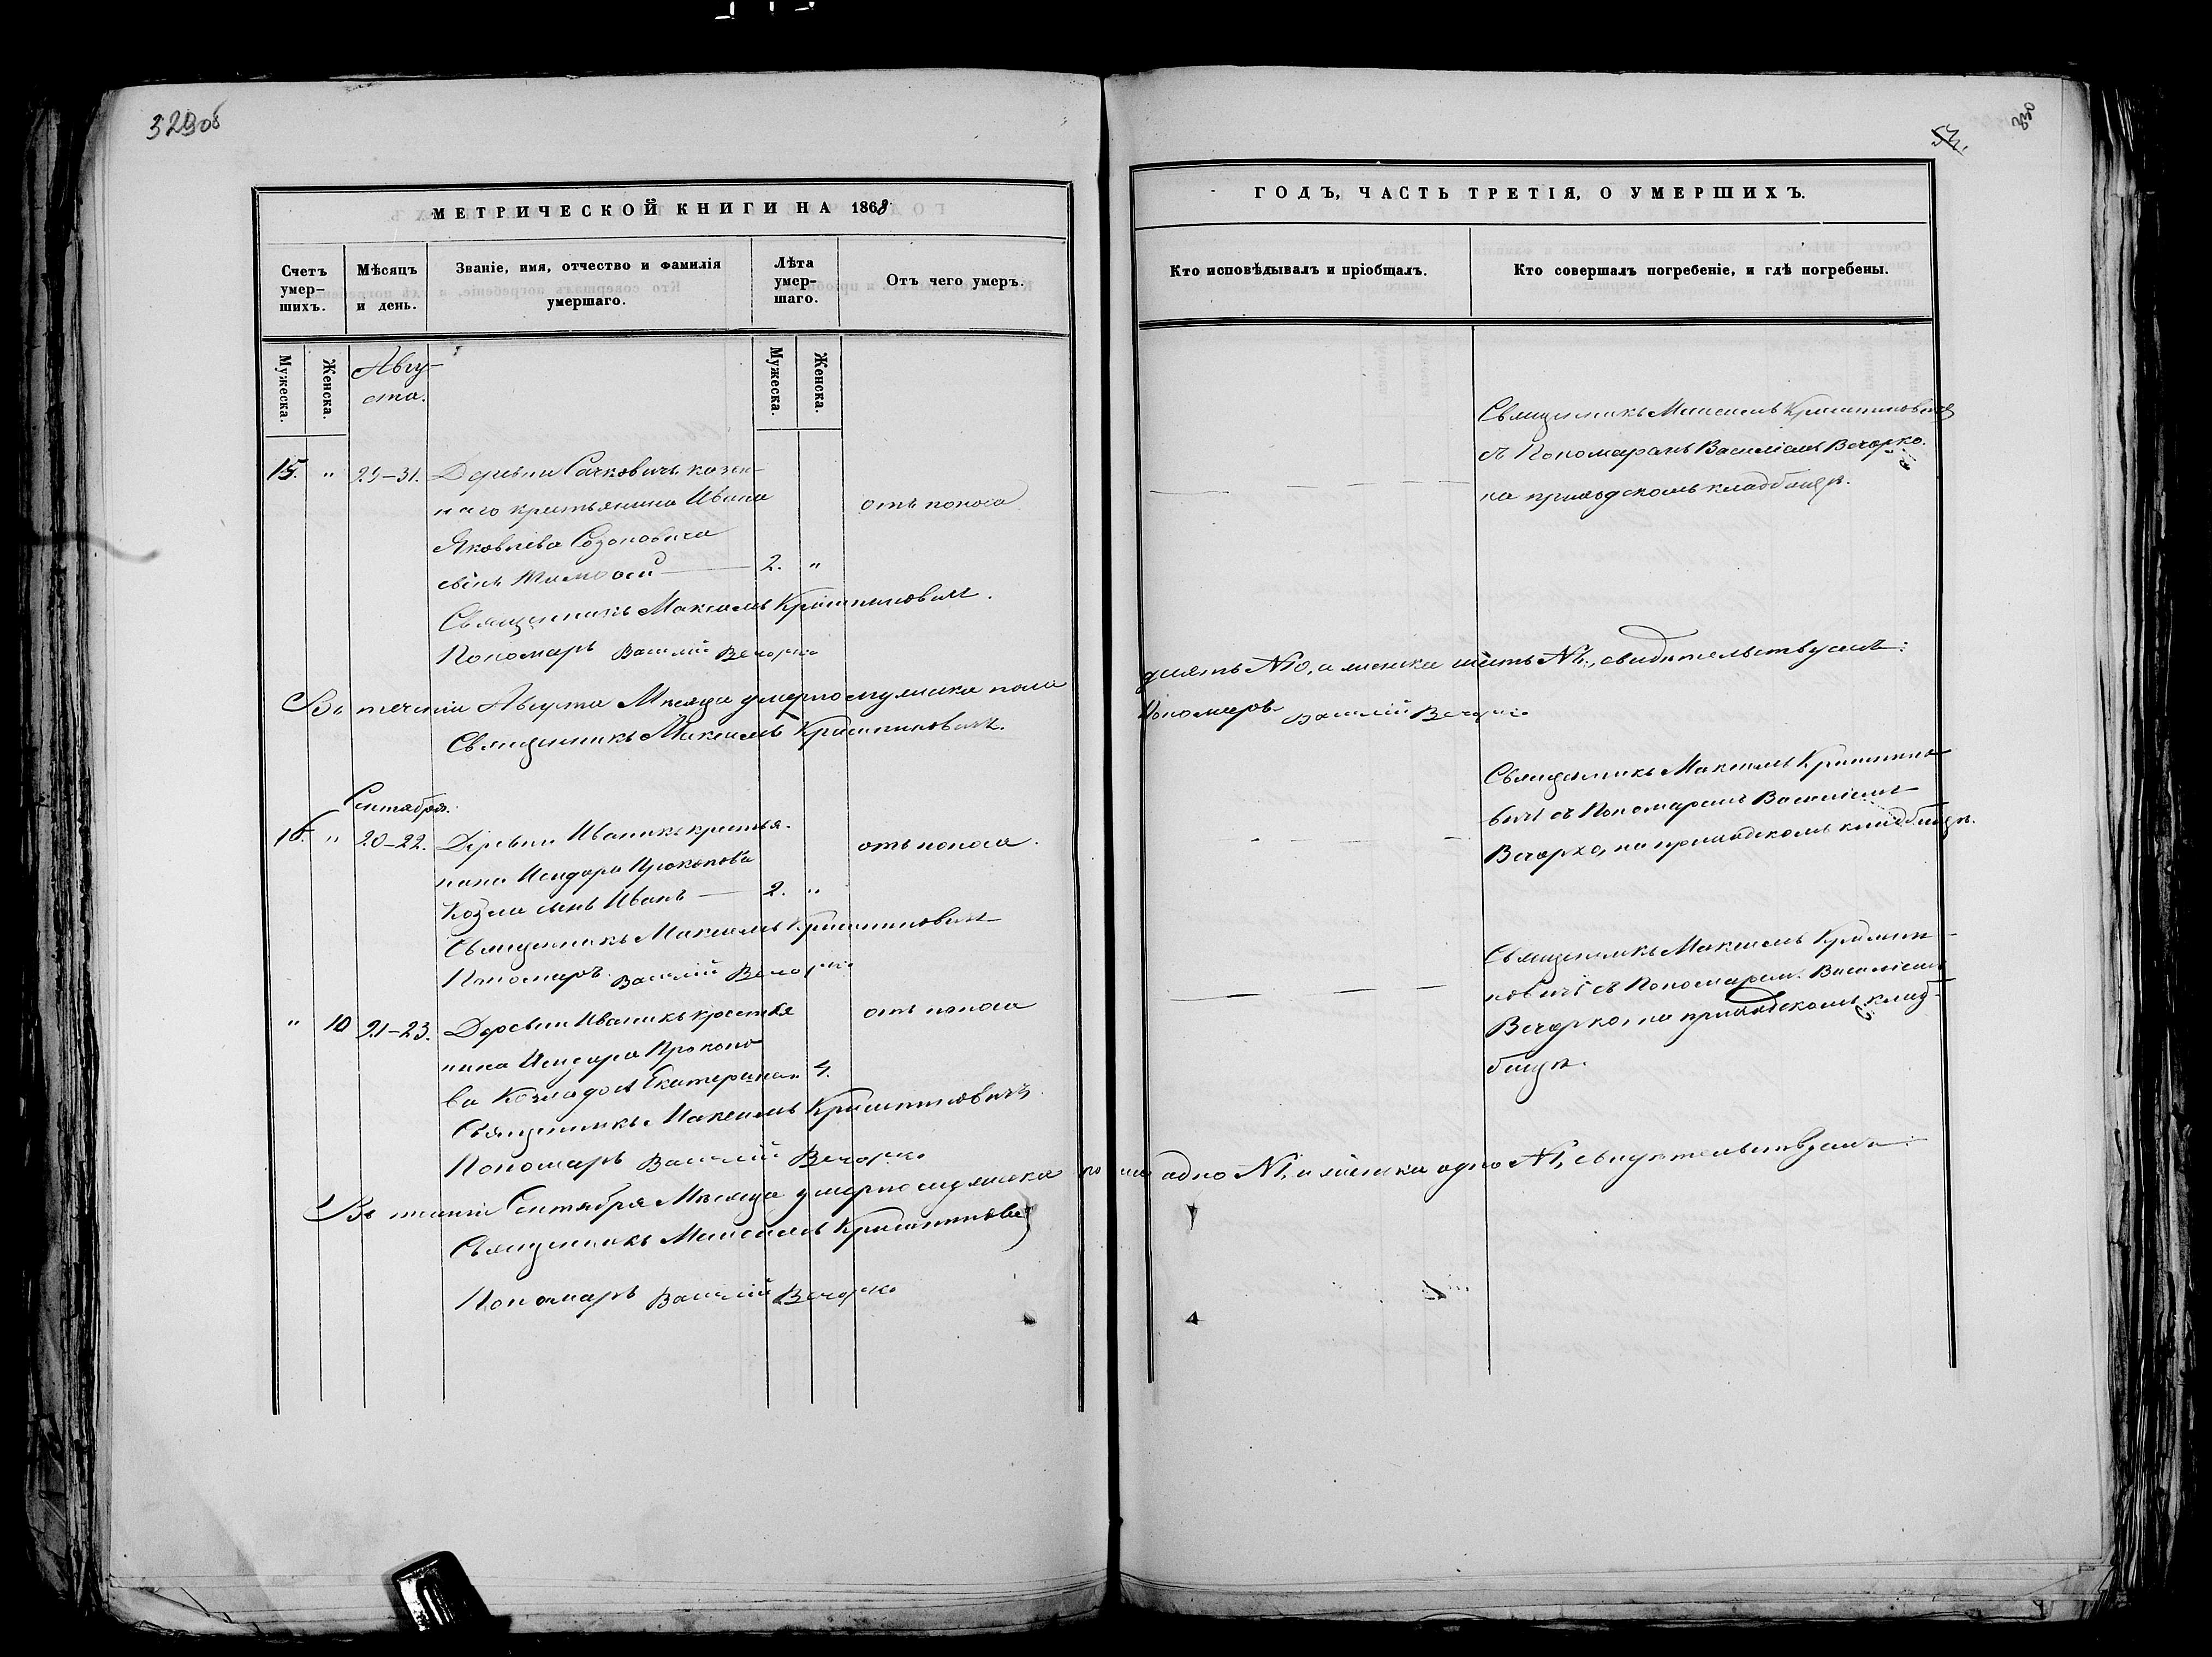 329об
53.
330
МЕТРИЧЕСКОЙ КНИГИ НА 1868
ГОДЪ, ЧАСТЬ ТРЕТІЯ, О УМЕРШИХЪ.
Счетъ умер-
шихъ.
Мѣсяцъ
и день.
Званіе, имя, отчество и фамилія
умершаго.
Лѣта
умер-
шаго.
Отъ чего умеръ.
Кто исповѣдывалъ и пріобщалъ.
Кто совершалъ погребеніе, и гдѣ погребены.
Мужеска.
Женска.
Авгу-
ста.
Мужеска.
Женска.
15. " 29–31. Деревни Сачковичъ казен-
наго крестьянина Ивана
Яковлева Созоновича
сынъ Тимофей — 2. "
отъ поноса
Священникъ Максимъ
съ Пономаремъ Василіемъ Вечорко
на приходскомъ кладбищѣ.
Священникъ Максимъ
Пономарь Василій Вечорко
Въ теченіи Августа Мѣсяца умерло мужеска пола
десять №10, а женска шесть №6, свидѣтельствуемъ:
Священникъ Максимъ
Пономарь Василій Вечорко
Сентября.
16. " 20–22. Деревни Иваникъ крестья-
нина Исидора Прокопова
Козла сынъ Иванъ — 2. "
отъ поноса.
Священникъ Максимъ
съ Пономаремъ Василіемъ
Вечорко, на приходскомъ кладбищѣ.
Священникъ Максимъ
Пономарь Василій Вечорко
" 10 21–23. Деревни Иваникъ крестья
нина Исидора Прокопо
ва Козла дочь Екатерина " 4.
отъ поноса
Священникъ Максимъ
съ Пономаремъ Василіемъ
Вечорко, на приходскомъ клад-
бищѣ.
Священникъ Максимъ
Пономарь Василій Вечорко
Въ теченіи Сентября Мѣсяца умерло мужеска пола одно №1, а женска одно №1, свидѣтельствуемъ:
Священникъ Максимъ
Пономарь Василій Вечорко